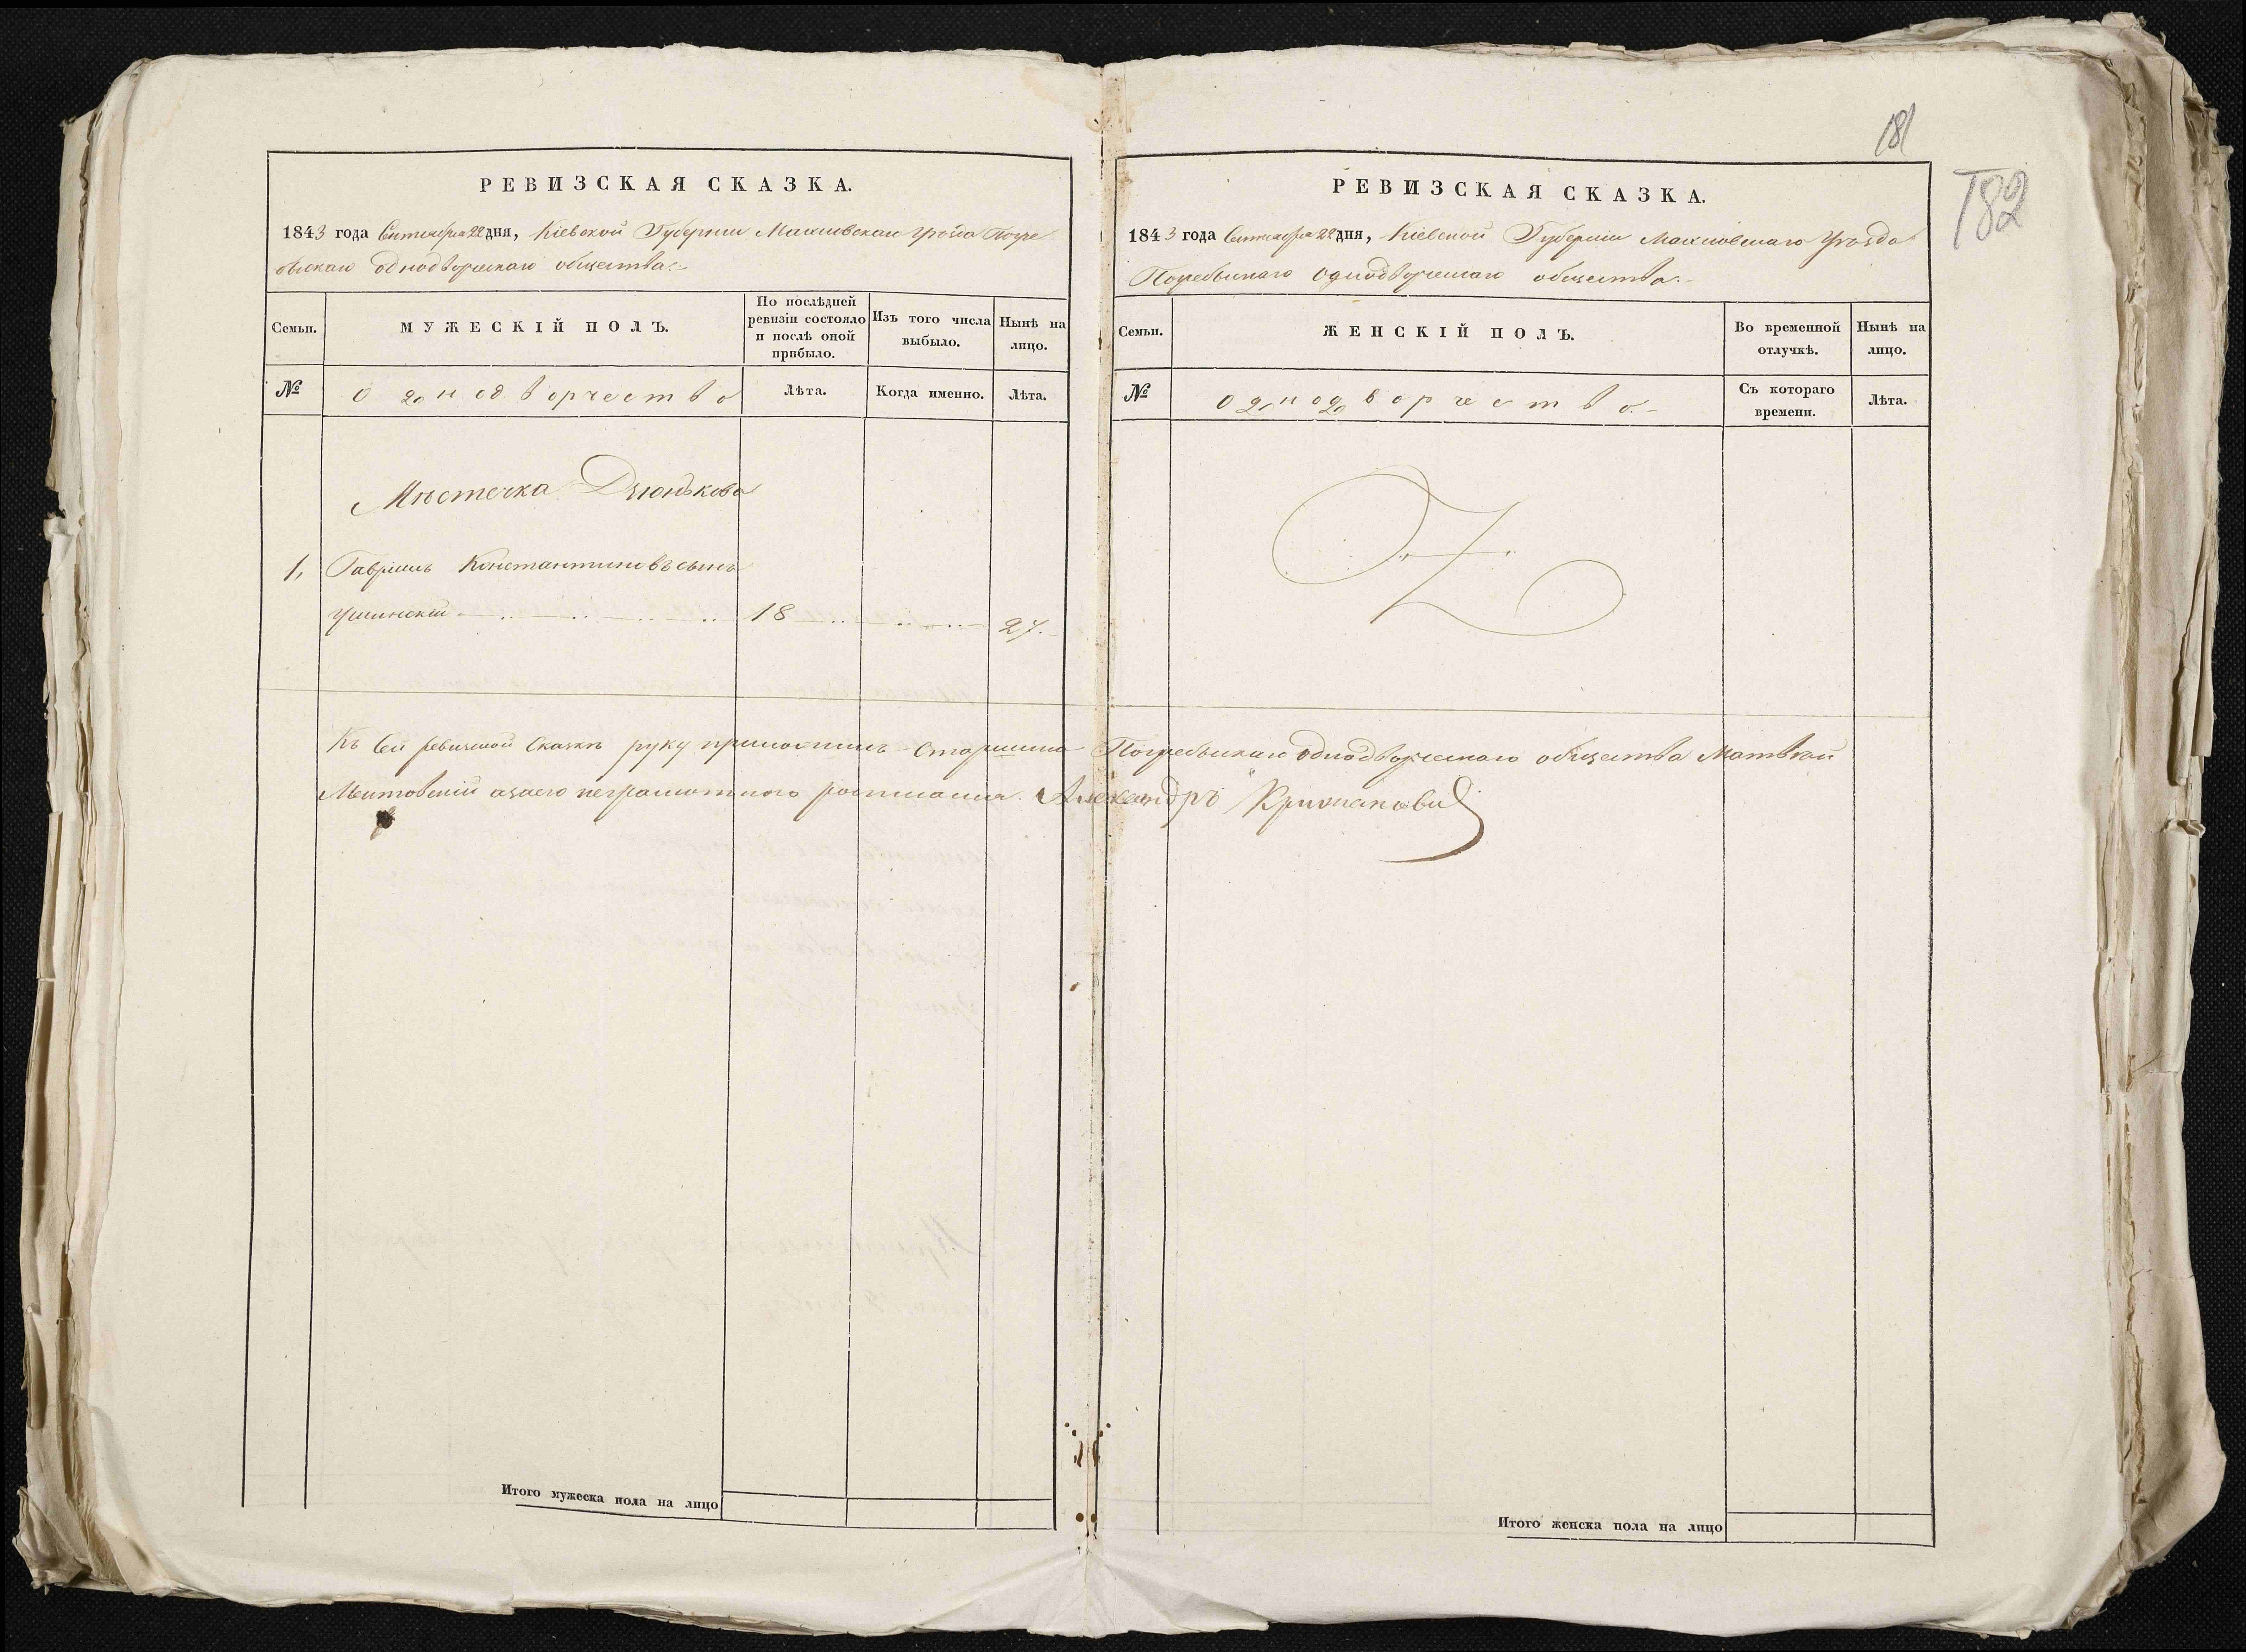 РЕВИЗСКАЯ СКАЗКА.
1843 года Сентября 22 дня, Кіевской Губерніи Махновскаго уѣзда Погре
быскаго однодворческаго общества.-
Семьи.
МУЖЕСКІЙ ПОЛЪ.
По послѣдней ревизіи состояло и послѣ оной прибыло.
Изъ того числа выбыло.
Нынѣ на лицо.
№
Однодворчество
Лѣта.
Когда именно.
Лѣта.
Мѣстечка Дзюнькова
1, Гавріилъ Константиновъ сынъ
18 27.
Къ сей ревизской сказкѣ руку приложилъ Старшина Погребыскаго однодворческаго общества Матвѣй
а за его неграмотного росписался Александръ
Итого мужеска пола на лицо
181
182
РЕВИЗСКАЯ СКАЗКА.
1843 года Сентября 22 дня, Кіевской Губерніи Махновскаго уѣзда
Погребыскаго однодворческаго общества.-
Семьи.
ЖЕНСКІЙ ПОЛЪ.
Во временной отлучкѣ.
Нынѣ на лицо.
№
Однодворчество.-
Съ котораго времени.
Лѣта.
Итого женска пола на лицо